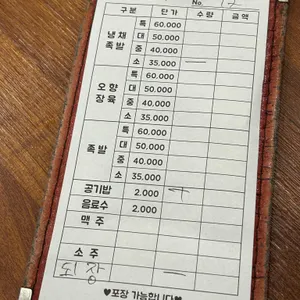 No. 12
구분 단가 수량 금액
냉채족발 특 60.000
대 50.000
중 40.000
소 35.000 一
오향장육 특 60.000
대 50.000
중 40.000
소 35.000
족발 특 60.000
대 50.000
중 40.000
소 35.000
공기밥 2.000
음료수 2.000
맥주
소주
되장 一
♥포장 가능합니다♥